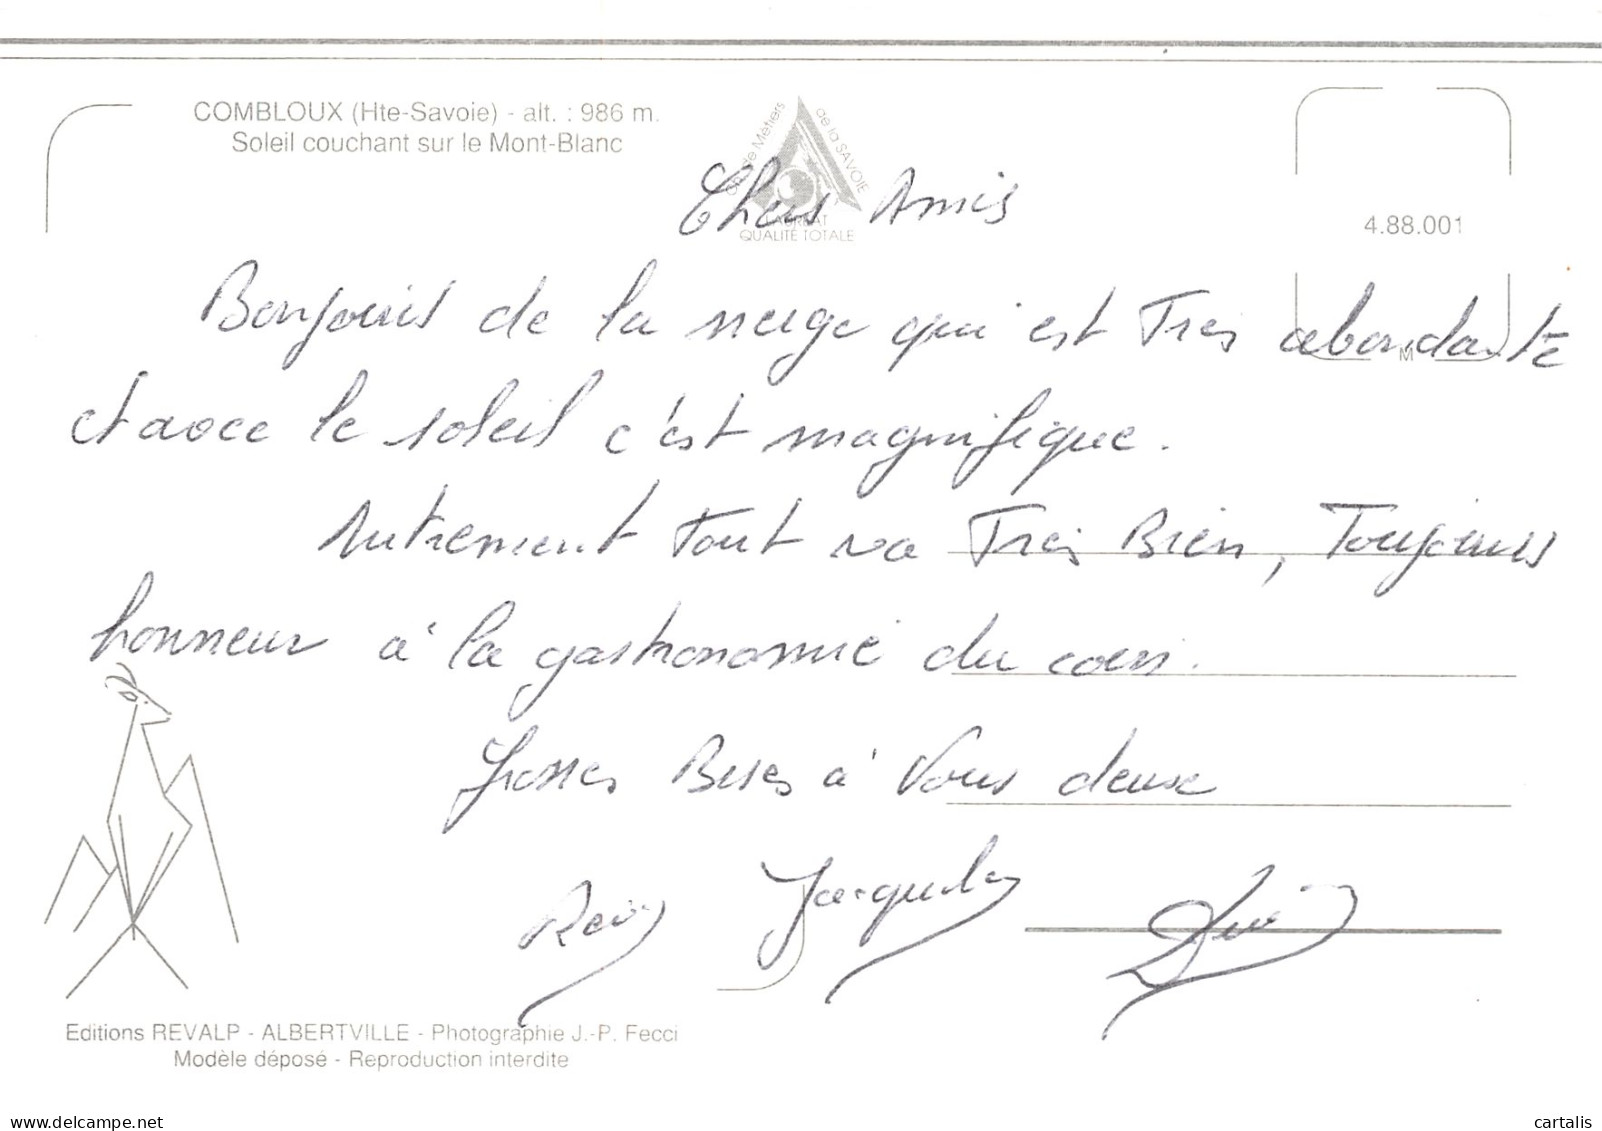 COMBLOUX (Hte-Savoie) - alt. : 986 m.
Soleil couchant sur le Mont-Blanc
de Métiers de la SAVOIE
LAURÉAT
QUALITÉ TOTALE
4.88.001
Chers Amis
Bonjours de la neige qui est Très abondante
et avec le soleil c'est magnifique.
Autrement tout va Très Bien, Toujours
honneur à la gastronomie du coin.
Grosses Bises à Vous deux
Jacqueline
M
Editions REVALP - ALBERTVILLE - Photographie J.-P. Fecci
Modèle déposé - Reproduction interdite
delcampe.net
cartalis